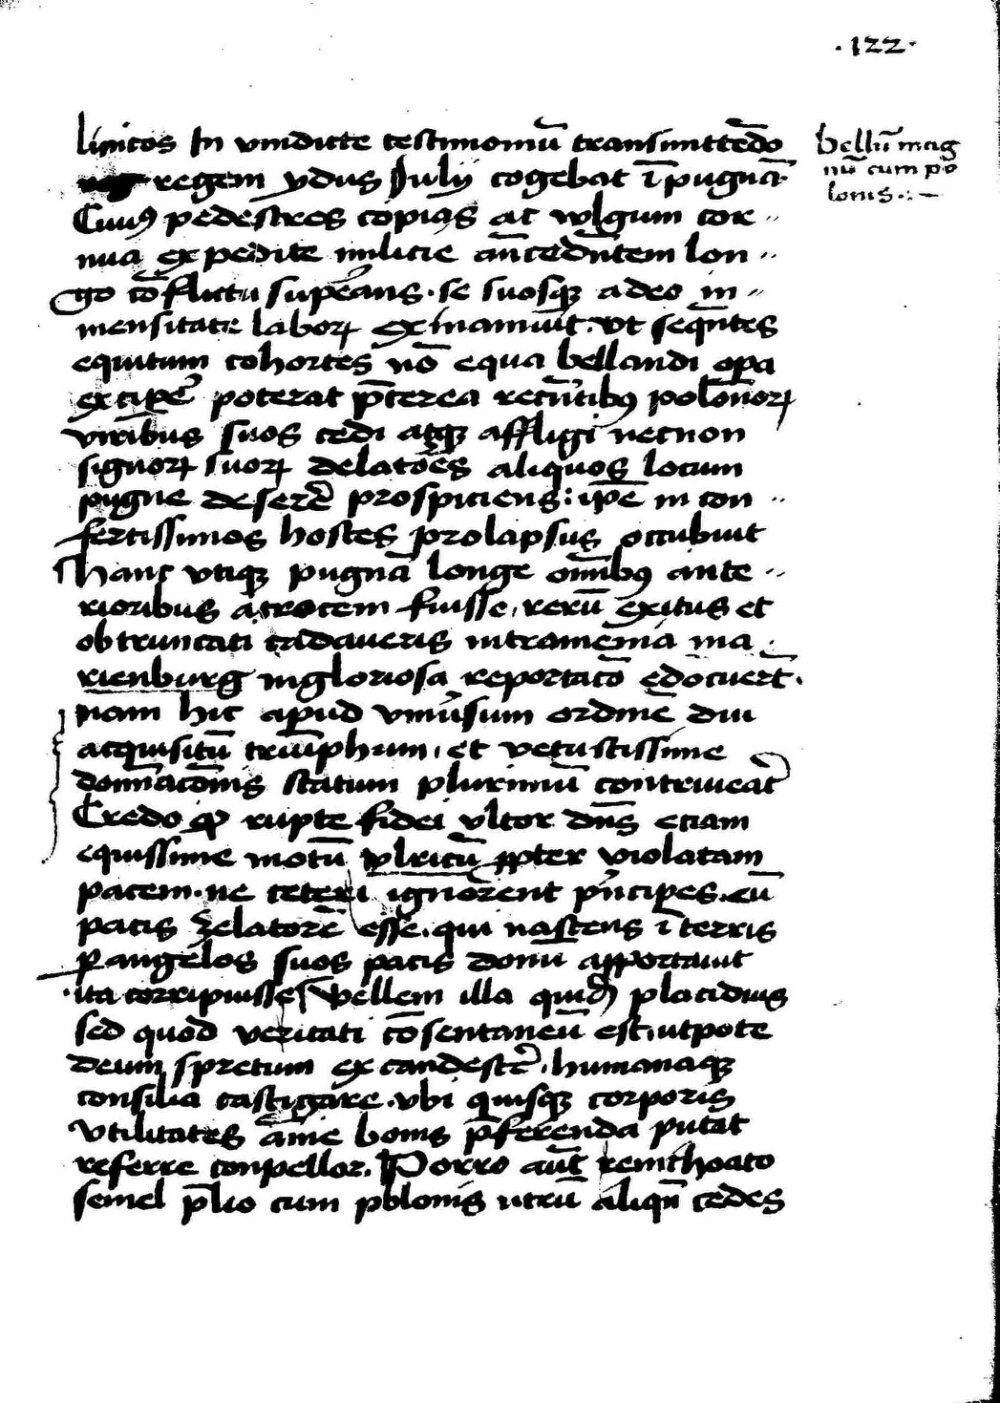 .122.
limitos In vindicte testimoniū transmittēdo
regem ydus Julij cogebat ī pugnā.
Cuiꝰ pedestres copias ac vulgum cor
nua expedite milicie ān̄cedn̄tem lon
go cōflictu supēans. se suosqꝫ adeo in
mensitate laborꝝ exinaniuit. vt seqn̄tes
equitum cohortes nō equa bellandi opa
excipe poterat p̄terea recūtibꝰ polonorꝝ
viribus suos cedi atqꝫ affligi necnon
signorꝝ suorꝝ delatōēs aliquos locum
pugne deserē prospiciens: ip̄e in con
fertissimos hostes prolapsus occubuit
Hanc vtiqꝫ pugnā longe om̄ibꝰ ante
rioribus atrocem fuisse, rerū exitus et
obtruncati cadaueris intramenia ma
rienburg ingloriosa reportacō edocuert̄.
nam hic apud vniūsum ordine diu
acquisitū triūphum, et vetustissime
domīacōnis statum plurimū contriueat
Credo qꝫ rupte fidei vltor dn̄s eciam
equissime motū vlricū ꝓpter violatam
pacem. ne ceteri ignorent pn̄cipes. eū
pacis zelatorē esse. qui nascens ī terris
ꝑ angelos suos pacis donū apportauit
.ita corripuisse Vellem illa quidē placidius
sed quod veritati cōsentaneū est. utpote
deum spretum excandescē. humanaqꝫ
consilia castigare. vbi quisqꝫ corporis
vtilitates āīe bonis p̄ferenda putat
referre conpellor. Porro aut̄ reinchoato
semel p̄lio cum polonis utrū aliqn̄ cedes
bellū mag
nū cum po
lonis .:. —